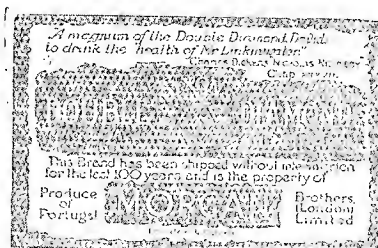 "A magnum of the Double Diamond, David,
to drink the health of Mr Linkinwater"
Charles Dickens Nicholas Nickleby
Chap
DOUBLE DIAMOND
This Brand has been shipped without intermission
for the last 100 years and is the property of
Produce
of
Portugal
MORGAN
Brothers,
(London)
Limited